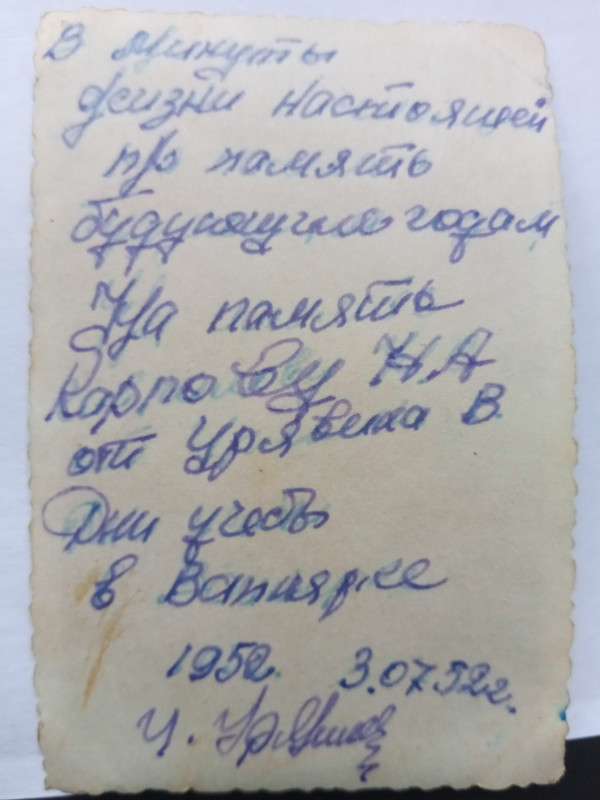 В минуты
жизни настоящей
на память
будующим годам
На память
Карпову Н А
от Урявина В.
Дни учебы
в Вапнярке
1952. 3.07 52г.